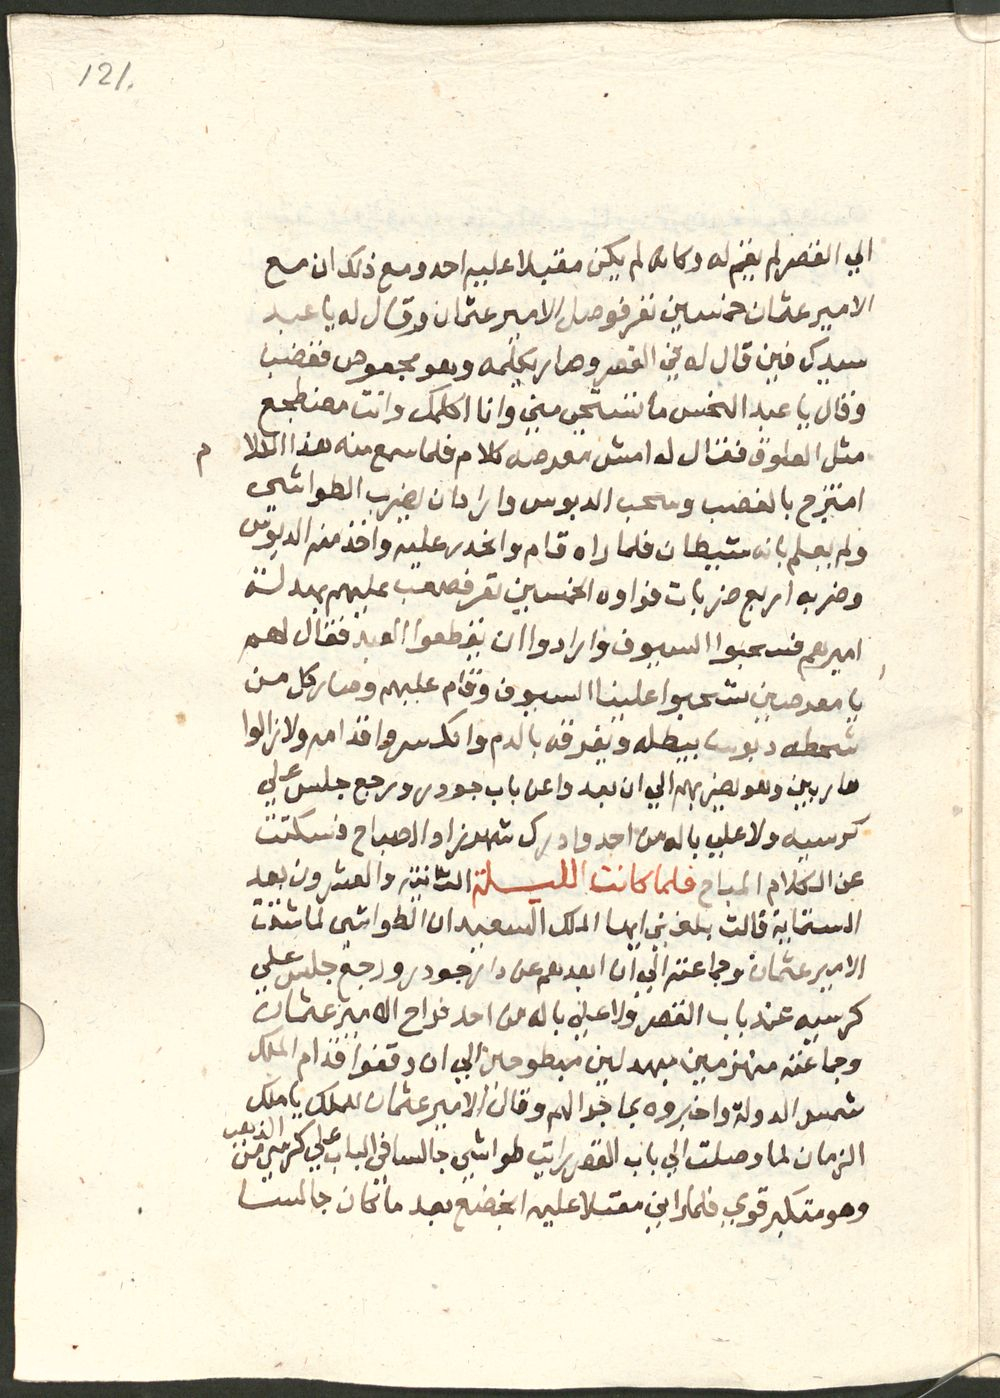 121.
الي القصر لم يقم له وكانه لم يكن مقبلا عليه احد ومع ذلك ان مع
الامير عثمان خمسين نفر فوصل الامير عثمان وقال له يا عبد
سيدك فين قال له في القصر وصار يكلمه وهو مجعوص فغضب
وقال يا عبد النحس ما تستحي مني وانا اكلمك وانت مضطجع
مثل العلوق فقال له امش معرصه كلام فلما سمع منه هذا الكلا م
امتزج بالغضب وسحب الدبوس واراد ان يضرب الطواشي
ولم يعلم بانه شيطان فلما راه قام وانحدر عليه واخذ منه الدبوس
وضربه اربع ضربات فراوه الخمسين نفر فصعب عليهم بهدلة
اميرهم فسحبوا السيوف وارادوا ان يقطعوا العبد فقال لهم
يا معرصين تسحبوا علينا السيوف وقام عليهم وصار كل من
شحطه دبوس يبطله ويغرقه بالدم وانكسروا قدامه ولا زالوا
هاربين وهو يضربهم الي ان بعدوا عن باب جودر ورجع جلس علي
كرسيه ولا علي باله من احد وادرك شهرزاد الصباح فسكتت
عن الكلام المباح فلما كانت الليلة الثانية والعشرون بعد
الستماية قالت بلغني ايها الملك السعيد ان الطواشي لما شتت
الامير عثمان وجماعته الي ان ابعدهم عن دار جودر ورجع جلس علي
كرسيه عند باب القصر ولا علي باله من احد فراح الامير عثمان
وجماعته منهزمين مبهدلين مبطوحين الي ان وقفوا قدام الملك
شمس الدولة واخبروه بما جرا لهم وقال الامير عثمان للملك يا ملك
الزمان لما وصلت الي باب القصر رايت طواشي جالسا في الباب علي كرسي من الذهب
وهو متكبر قوي فلما راني مقبلا عليه انجضع بعد ما كان جالسا